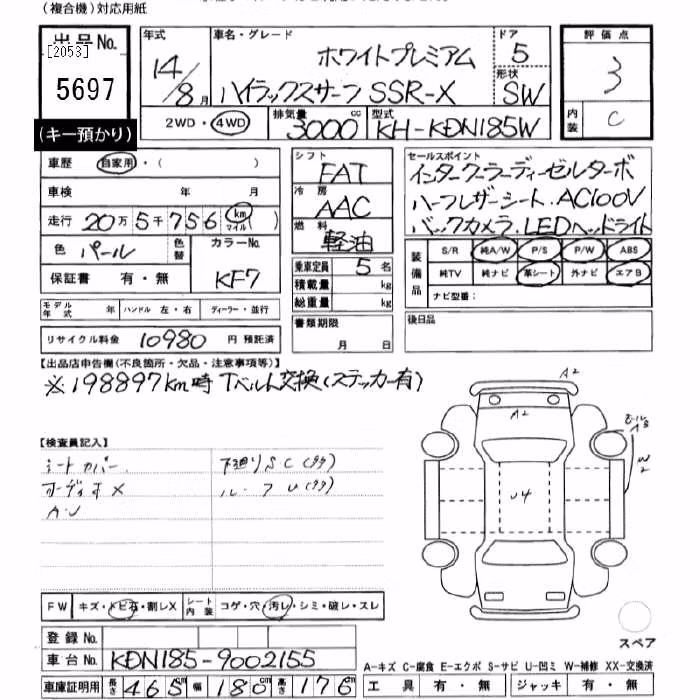 (複合機)対応用紙
出品No.
[2053]
5697
(キー預かり)
年式 14/8月
車名・グレード ホワイトプレミアム
ハイラックスサーフ SSR-X
ドア 5
形状 SW
評価点 3
内装 C
2WD・4WD
排気量 3000cc
型式 KH-KDN185W
車歴 自家用・( )
車検 年 月
走行 20万5千756 km マイル
色 パール
色替
カラーNo. KF7
保証書 有・無
シフト FAT
冷房 AAC
燃料 軽油
乗車定員 5名
積載量 kg
総重量 kg
セールスポイント
インタークーラーディーゼルターボ
ハーフレザーシート.AC100V
バックカメラ.LEDヘッドライト
装備品
S/R 純A/W P/S P/W ABS
純TV 純ナビ 革シート 外ナビ エアB
ナビ型番:
モデル年式 年
ハンドル 左・右
ディーラー・並行
リサイクル料金 10980 円 預託済
書類期限 月 日
後日品
【出品店申告欄(不良箇所・欠品・注意事項等)】
※198897km時 Tベルト交換(ステッカー有)
【検査員記入】
シートカバー
オーディオX
下廻りSC(タタ)
A2
A2
U4
W2
FW キズ・トビ石・割レX
シート内装 コゲ・穴・汚レ・シミ・破レ・スレ
スペア
登録No.
車台No. KDN185-9002155
車庫証明用 長さ 465cm 幅 180cm 高さ 176cm
A-キズ C-腐食 E-エクボ S-サビ U-凹ミ W-補修 XX-交換済
工具 有・無 ジャッキ 有・無